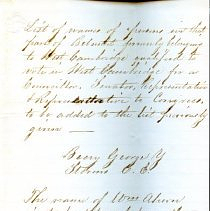 List of names of persons in that
part of Belmont formerly belonging
to West Cambridge qualified to
vote in West Cambridge for a
Councillor, Senator, Representative
to Congress,
to be added to the list previously
given —
Berry George Y
Stearns C. C.
The name of Wm Ahern